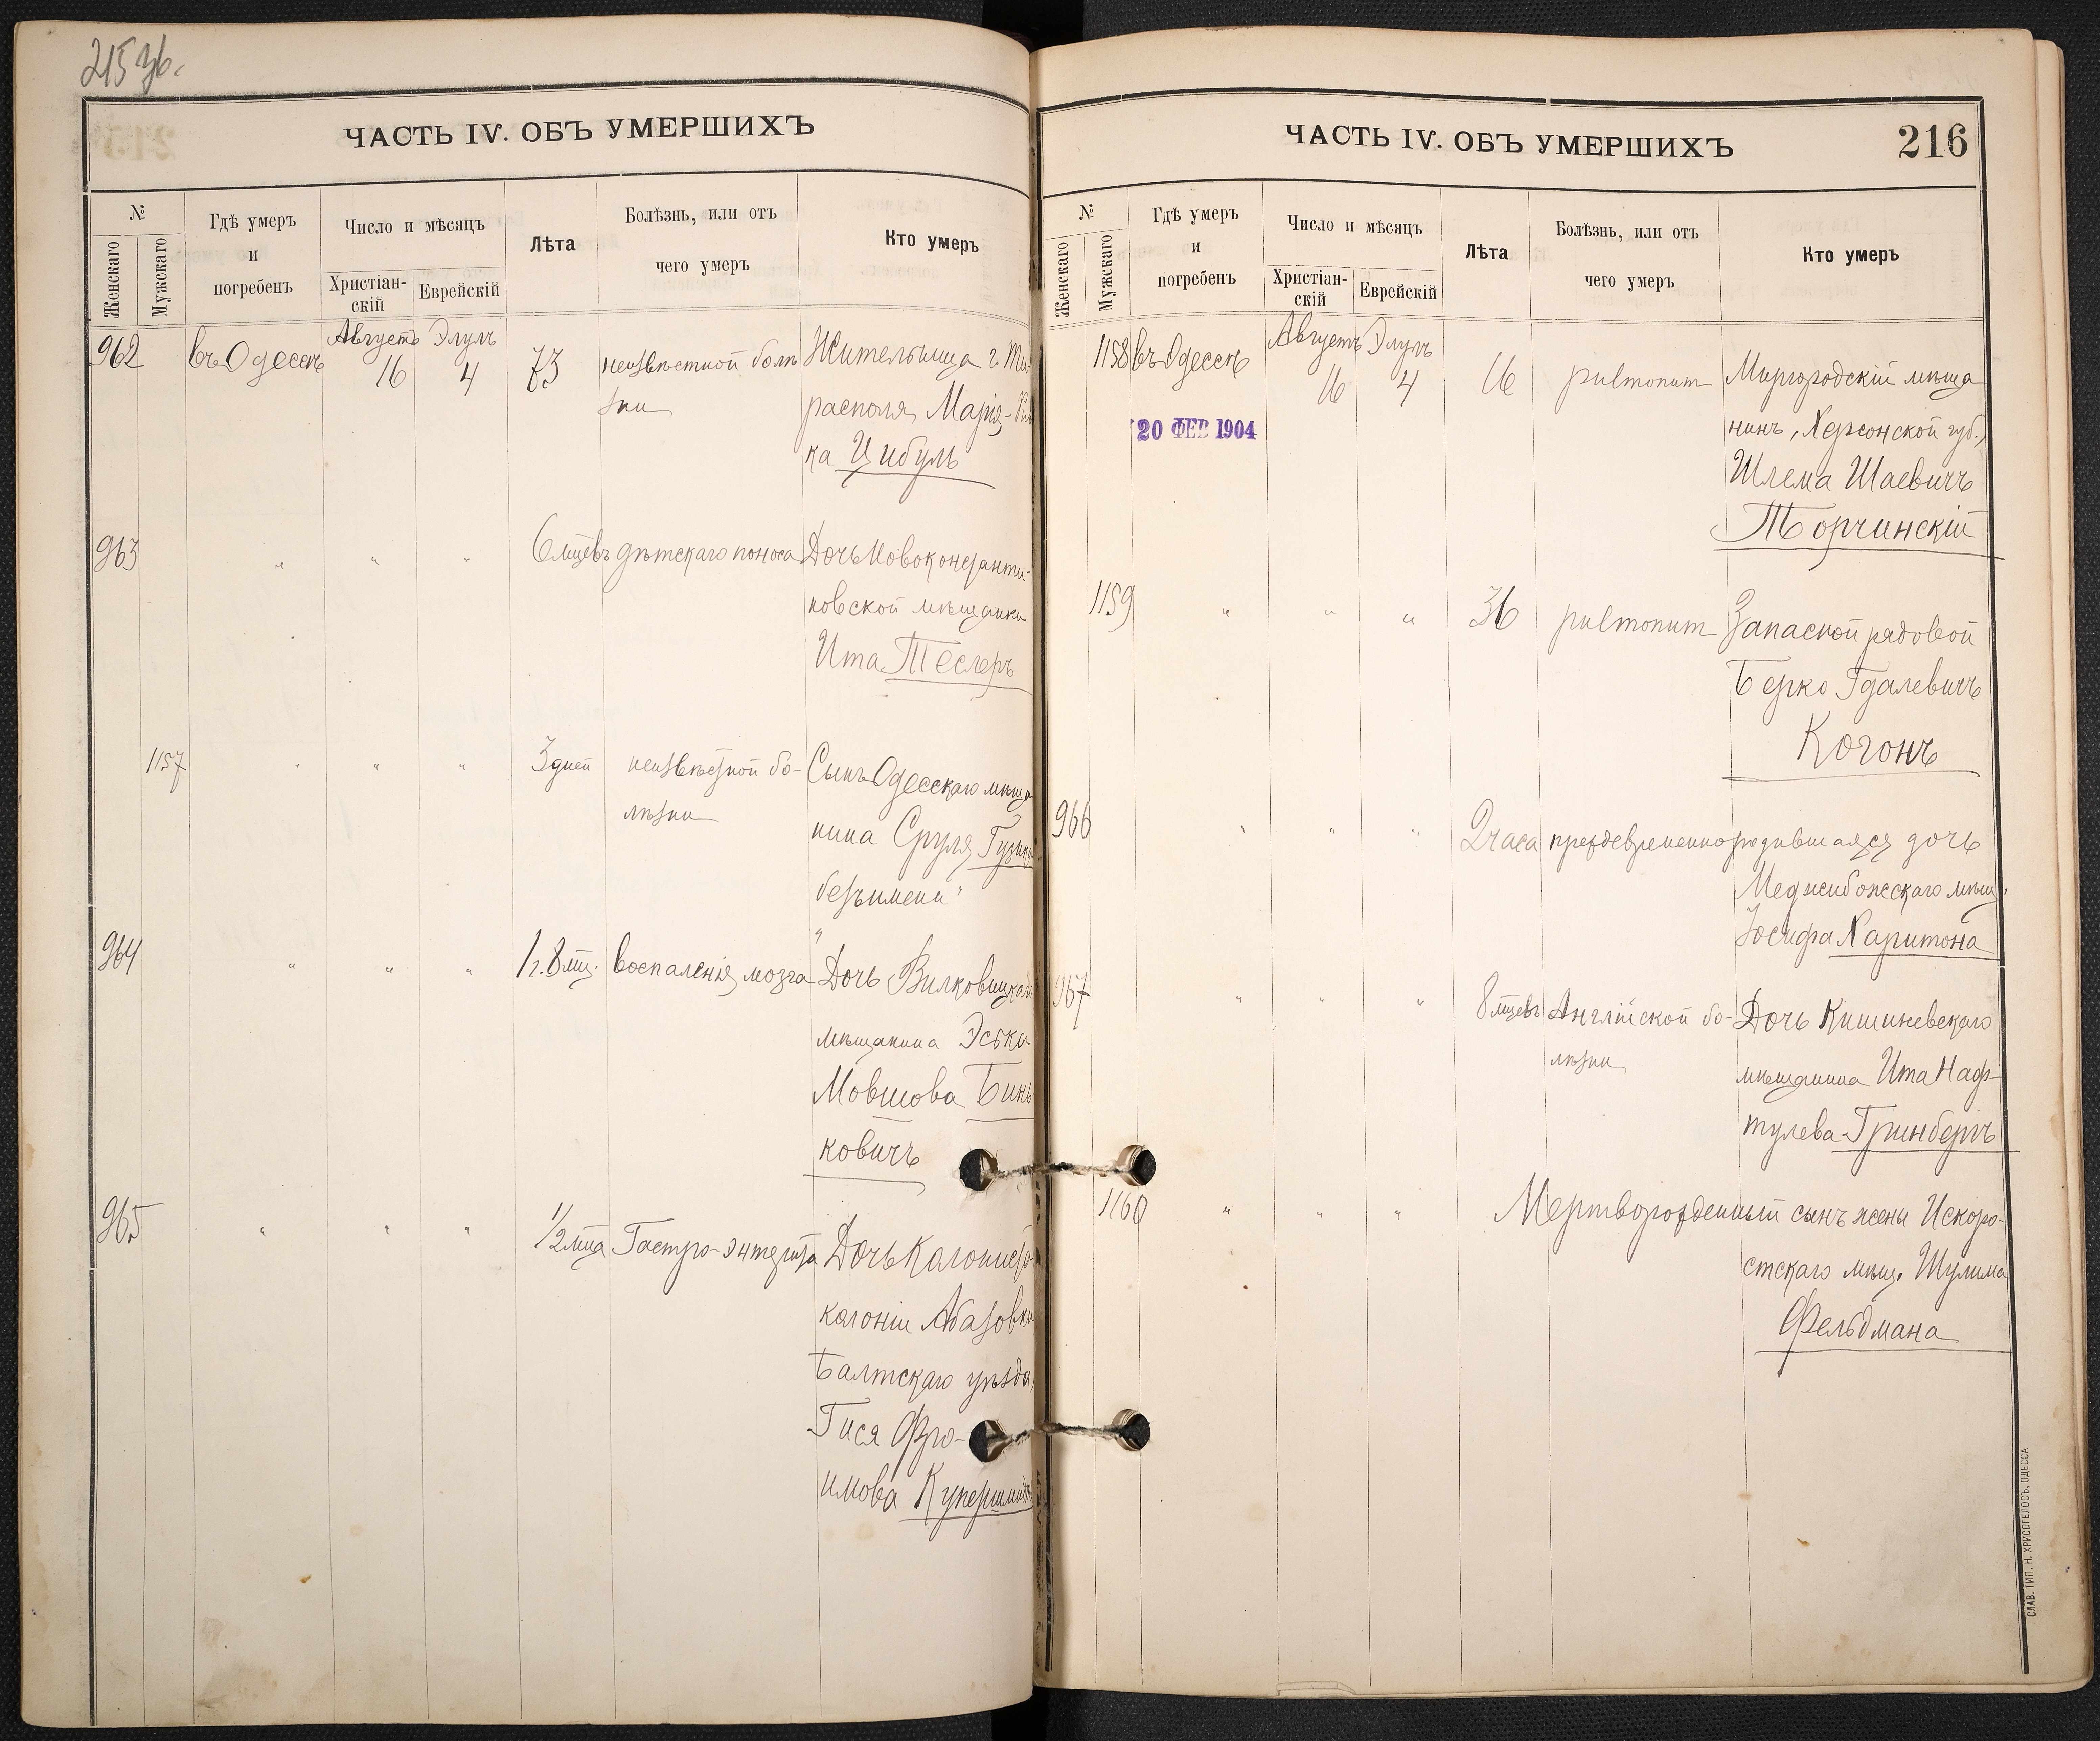 215 зв.
ЧАСТЬ IV. ОБЪ УМЕРШИХЪ
№
Женскаго
Мужскаго
Гдѣ умеръ
и
погребенъ
Число и мѣсяцъ
Христіан-
скій
Еврейскій
Лѣта
Болѣзнь, или отъ
чего умеръ
Кто умеръ
962 въ Одессѣ Августъ 16 Элулъ 4 73 неизвѣстной болѣ Жительница г. Ти-
зни располя Марія-
ка Цибуль
963 " " " 6 мцевъ дѣтскаго поноса Дочь Новоконстанти-
новской мѣщанки
Ита Теслеръ
1157 " " " 3 дней неизвѣстной бо- Сынъ Одесскаго мѣща
лѣзни нина Сруля
безъ имени
964 " " " 1 г. 8 мц. воспаленія мозга Дочь Вилковицкаго
мѣщанина Эська
Мовшова Бинь
ковичъ
965 " " " 1/2 мца Гастро-энтерита Дочь Калониста
калоніи Абазовки
Балтскаго уѣзда
Гися Фро-
имова Купершмидъ
ЧАСТЬ IV. ОБЪ УМЕРШИХЪ
216
№
Женскаго
Мужскаго
Гдѣ умеръ
и
погребенъ
Число и мѣсяцъ
Христіан-
скій
Еврейскій
Лѣта
Болѣзнь, или отъ
чего умеръ
Кто умеръ
1158 въ Одессѣ Августъ 16 Элулъ 4 16 Миргородскій мѣща
20 ФЕВ 1904
нинъ, Херсонской губ.,
Шлема Шаевичъ
Торчинскій
1159 " " " 36 Запасной рядовой
Берко Гдалевичъ
Когонъ
966 " " " 2 часа преждевременно родившаяся дочь
Меджибожскаго мѣщ.
Іосифа Харитона
967 " " " 8 мцевъ Англійской бо- Дочь Кишиневскаго
лѣзни мѣщанина Ита Наф-
тулева Гринбергъ
1160 " " " Мертворожденный сынъ жены Искоро-
стскаго мѣщ. Шулима
Фельдмана
СЛАВ. ТИП. Н. ХРИСОГЕЛОСЪ, ОДЕССА